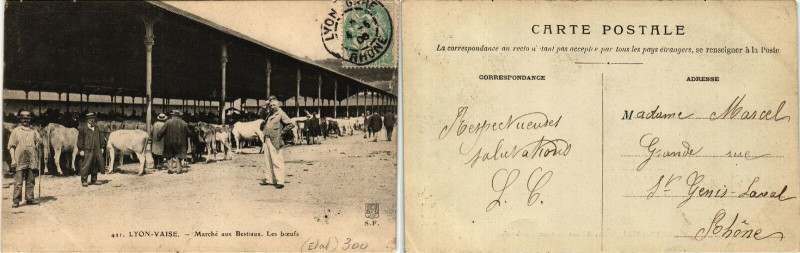 LYON GARE
RHÔNE
421. LYON-VAISE. — Marché aux Bestiaux. Les bœufs
S.F.
(Etat) 300
CARTE POSTALE
La correspondance au recto n'étant pas acceptée par tous les pays étrangers, se renseigner à la Poste
CORRESPONDANCE
Respectueuses
salutations
L. C.
ADRESSE
Madame Marcel
Grande rue
St Genis-Laval
Rhône